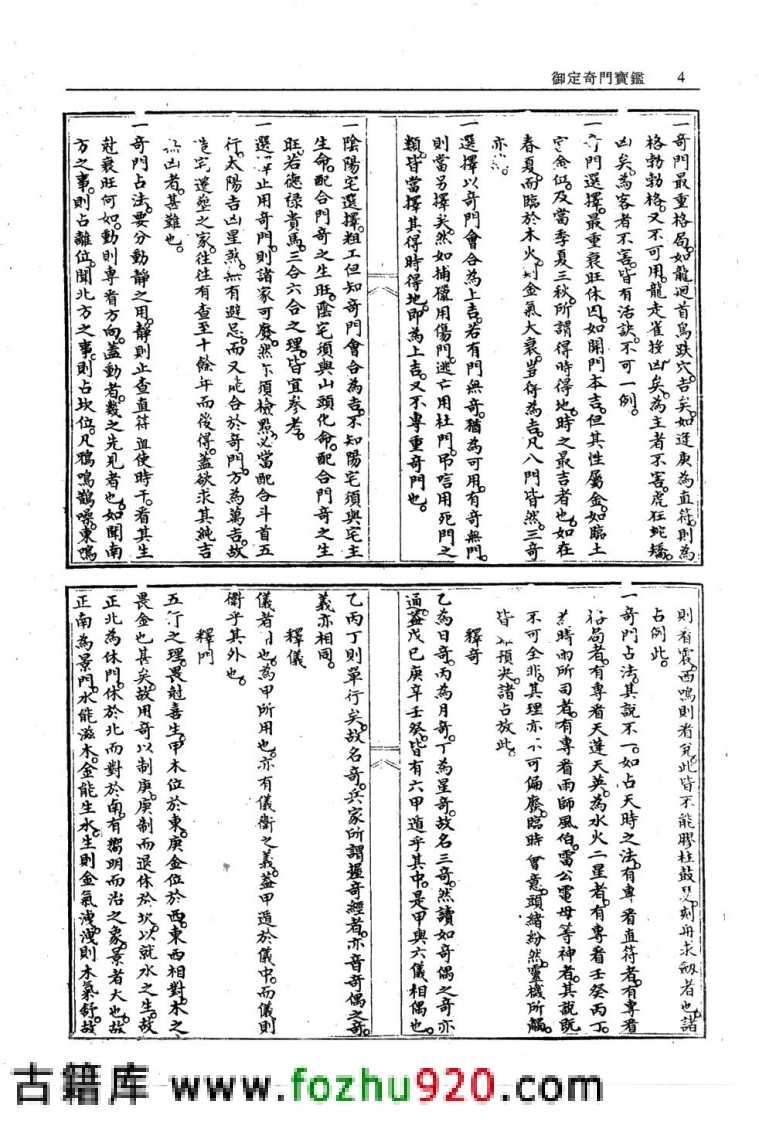 御定奇門寶鑑 4
一奇門最重格局。如龍迴首鳥跌穴。吉矣。如逢庚為直符。則為
格勃勃格。又不可用。龍走雀投凶矣。為主者不害。虎狂蛇矯。
凶矣。為客者不害。皆有活訣。不可一例。
門選擇。最重衰旺休囚。如開門本吉。但其性屬金。如臨土
金位。及當季夏三秋。所謂得時得地。時之最吉者也。如在
春夏。而臨於木火。則金氣大衰。豈得為吉。凡八門皆然。三奇
亦
一選擇以奇門會合為上吉。若有門無奇。猶為可用。有奇無門。
則當另擇矣。然如捕獵用傷門。逃亡用杜門。吊唁用死門之
類。皆當擇其得時得地。即為上吉。又不專重奇門也。
一陰陽宅選擇。粗工但知奇門會合為吉。不知陽宅須與宅主
生命。配合門奇之生旺。陰宅須與山頭化命。配合門奇之生
旺。若德祿貴馬。三合六合之理。皆宜參考。
一選 止用奇門。則諸家可廢。然亦須檢點。必當配合斗首五
行。太陽吉凶星煞。無有避忌。而又能合於奇門。方為萬吉。故
造宅遷塋之家。往往有查至十餘年而後得。蓋欲求其純吉
無凶者。甚難也。
一奇門占法。要分動靜之用。靜則止查直符直使時干。看其生
尅衰旺何如。動則專看方向。蓋動者。幾之先見者也。如聞南
方之事。則占離位。聞北方之事。則占坎位。凡鴉鳴鵲噪。東鳴
則看震。西鳴則看兌。此皆不能膠柱鼓瑟。刻舟求劔者也。諸
占例此。
一奇門占法。其說不一。如占天時之法。有專看直符者。有專看
格局者。有專看天蓬天英。為水火二星者。有專看壬癸丙丁。
為時雨所司者。有專看雨師風伯。雷公電母等神者。其說既
不可全非。其理亦不可偏廢。臨時會意。頭緒紛然。靈機所觸。
皆 預決。諸占放此。
釋奇
乙為日奇。丙為月奇。丁為星奇。故名三奇。然讀如奇偶之奇亦
通。蓋戊己庚辛壬癸。皆有六甲遁乎其中。是甲與六儀相偶也。
乙丙丁則單行矣。故名奇。兵家所謂握奇經者。亦音奇偶之奇。
義亦相同。
釋儀
儀者 也。為甲所用也。亦有儀衛之義。蓋甲遁於儀中。而儀則
衛乎其外也。
釋門
五行之理。畏尅喜生。甲木位於東。庚金位於西。東西相對。木之
畏金也甚矣。故用奇以制庚。庚制而退休於坎。以就水之生。故
正北為休門。休於北而對於南。有嚮明而治之象。景者大也。故
正南為景門。水能滋木。金能生水。生則金氣洩。洩則木氣舒。故
古籍库 www.fozhu920.com